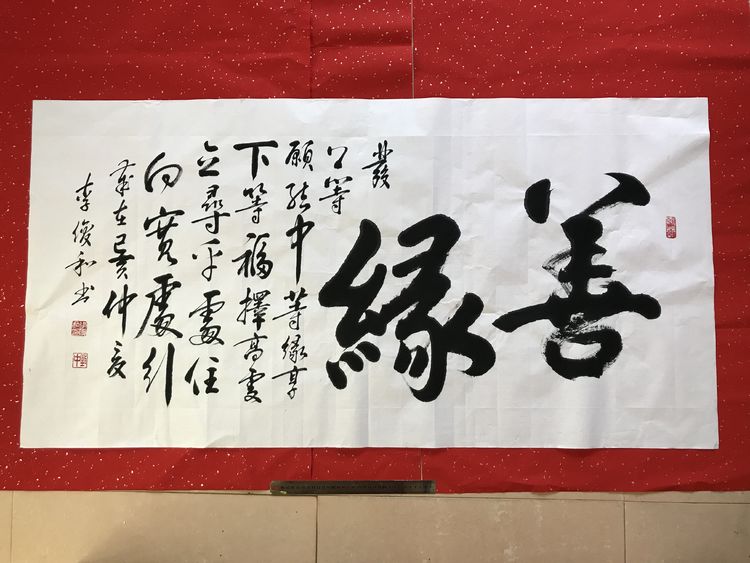 善緣
發
上等
願結中等緣享
下等福擇高處
立尋平處住
向寬處行
歲在己亥仲夏
李俊和书